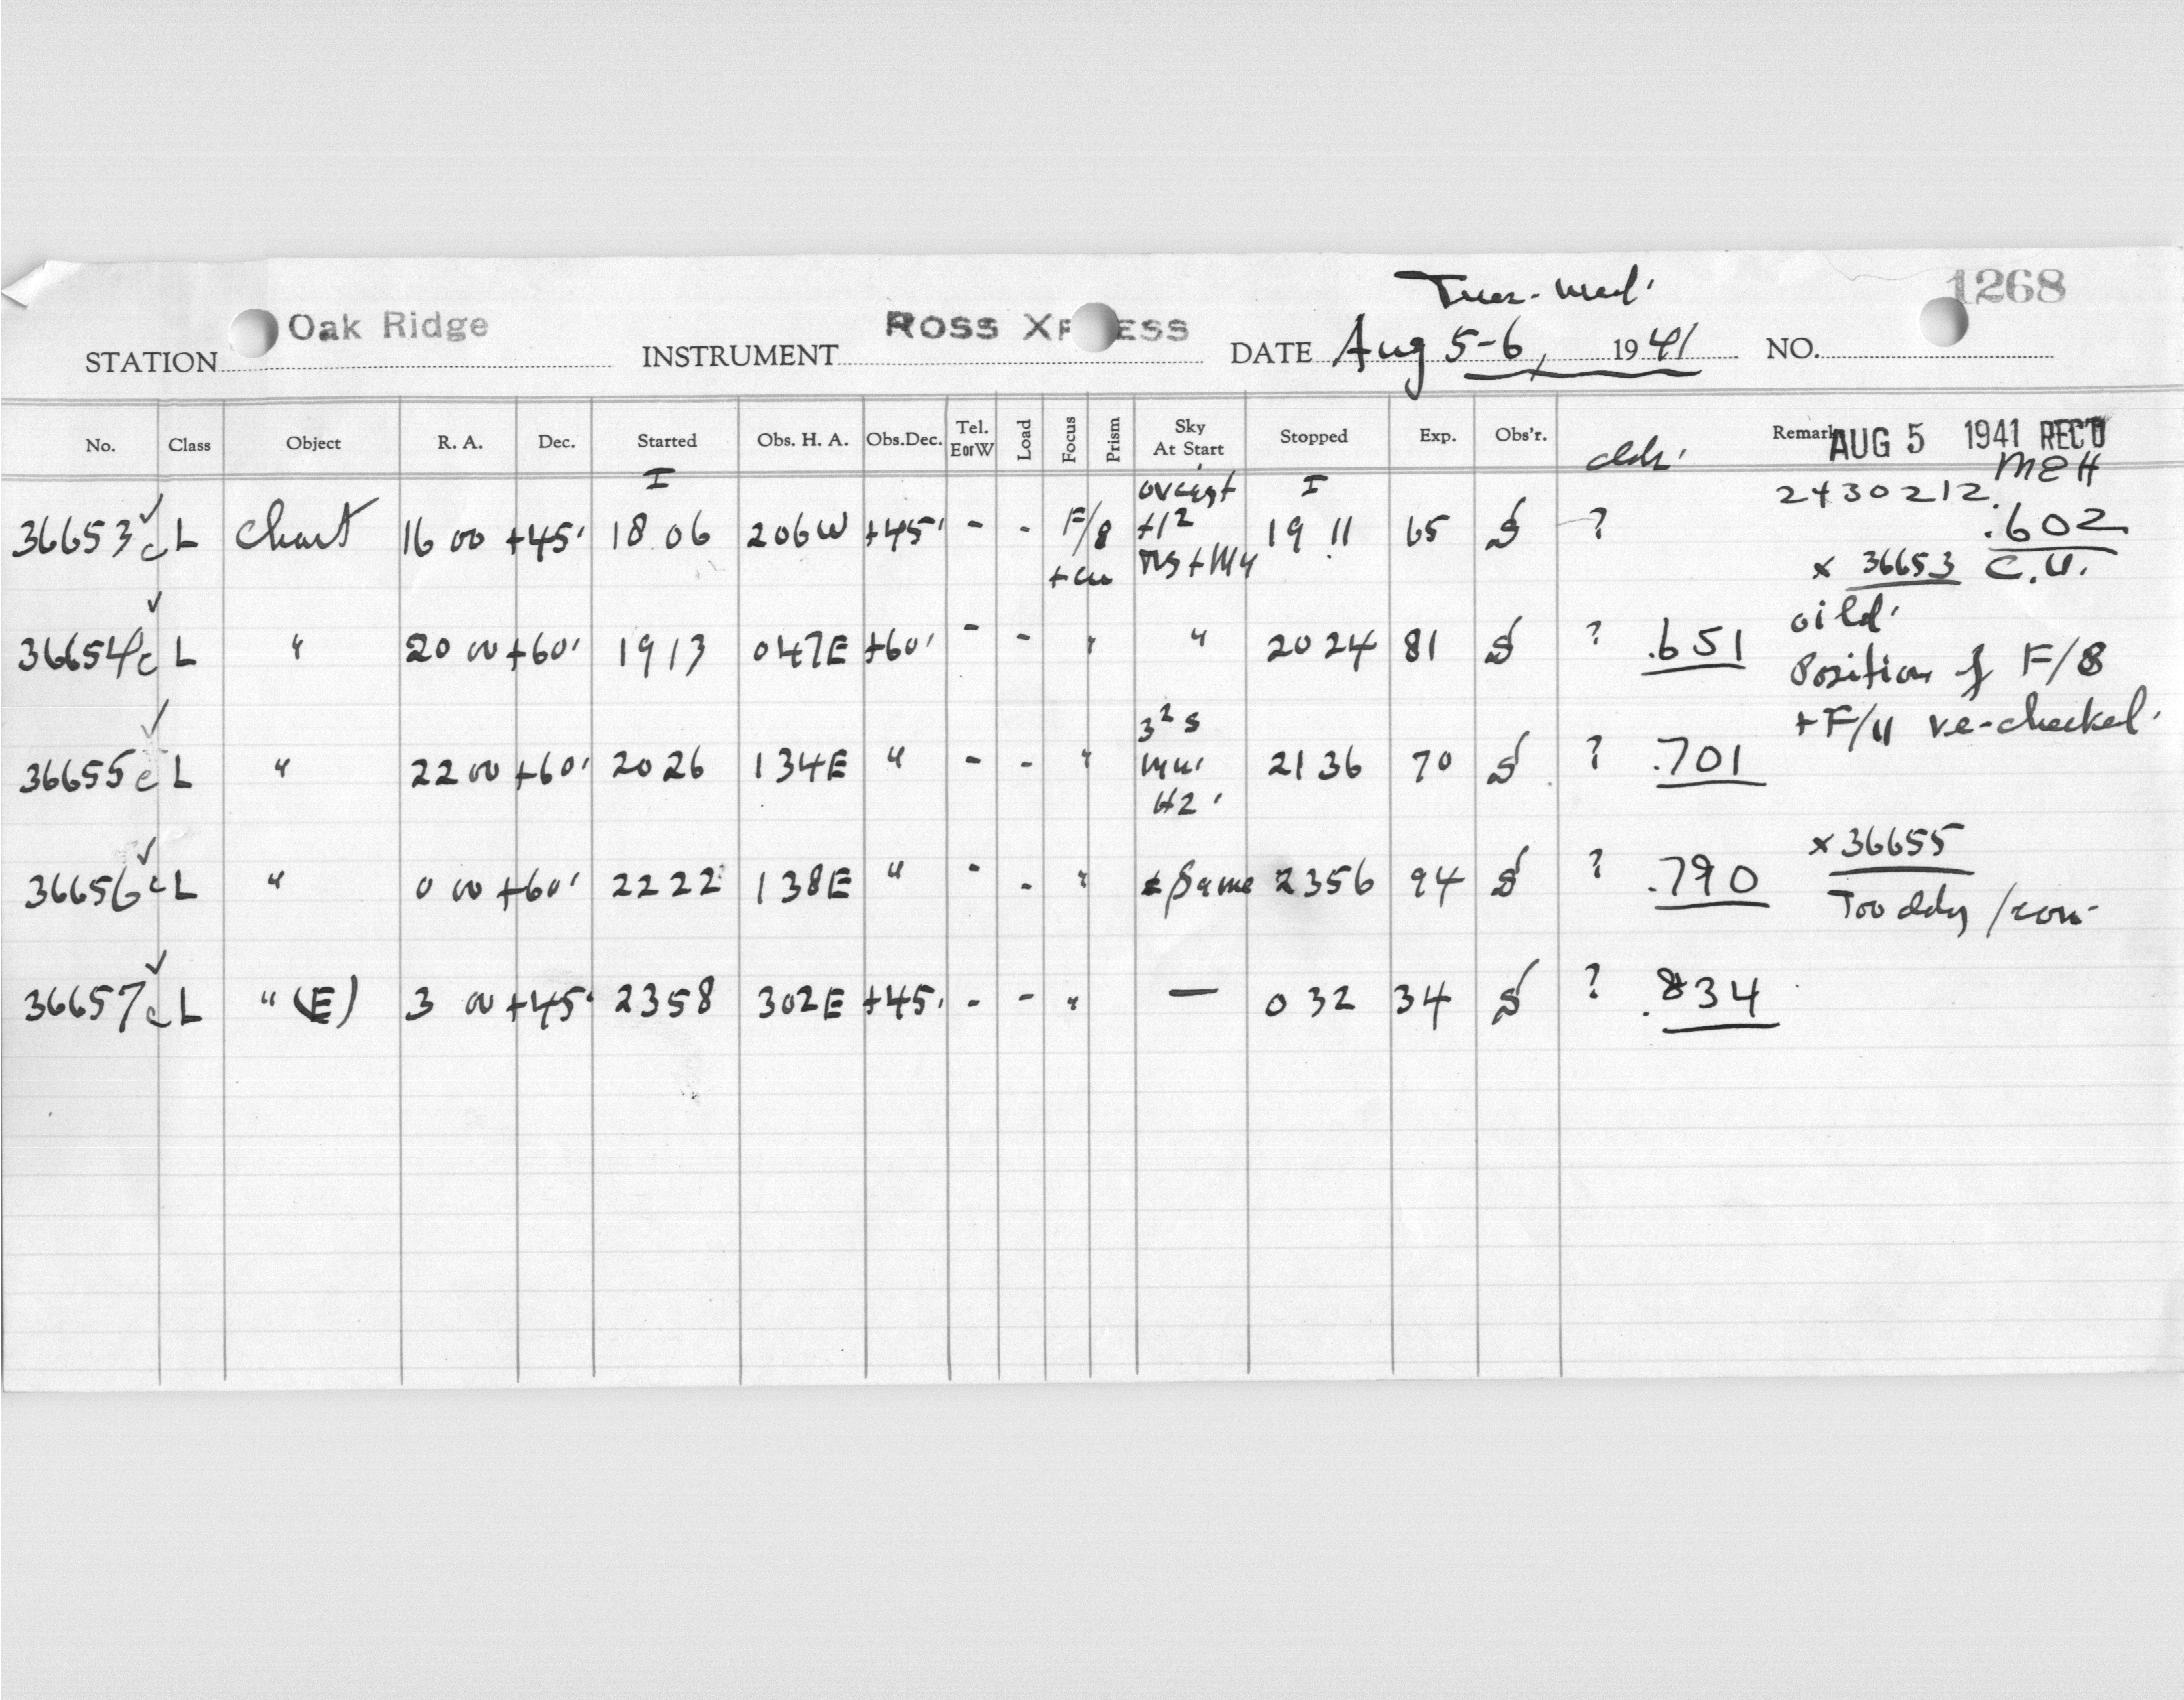 Tues - Wed.
1268
STATION Oak Ridge INSTRUMENT ROSS XP ESS DATE Aug 5-6, 1941 NO.
No. Class Object R. A. Dec. Started Obs. H. A. Obs.Dec. Tel. EorW Load Focus Prism Sky At Start Stopped Exp. Obs'r. Remark AUG 5 1941 REC'D
MEH
I ovcast I 2430212.
36653 c L Chart 16 00 +45' 18 06 206W +45' - - F/8 19 11 65 S ? .602
x 36653 C.U.
36654 c L " 20 00 +60' 19 13 047E +60' - - " " 20 24 81 S ? .651 oild.
Position of F/8
+F/11 re-checked.
3² s
36655 c L " 22 00 +60' 20 26 134E " - - " 21 36 70 S ? .701
Hz.
36656 c L " 0 00 +60' 22 22 138E " - - " Same 2356 94 S ? .790 x 36655
Too cldy
36657 c L " (E) 3 00 +45' 23 58 302E +45' - - " — 0 32 34 S ? .834